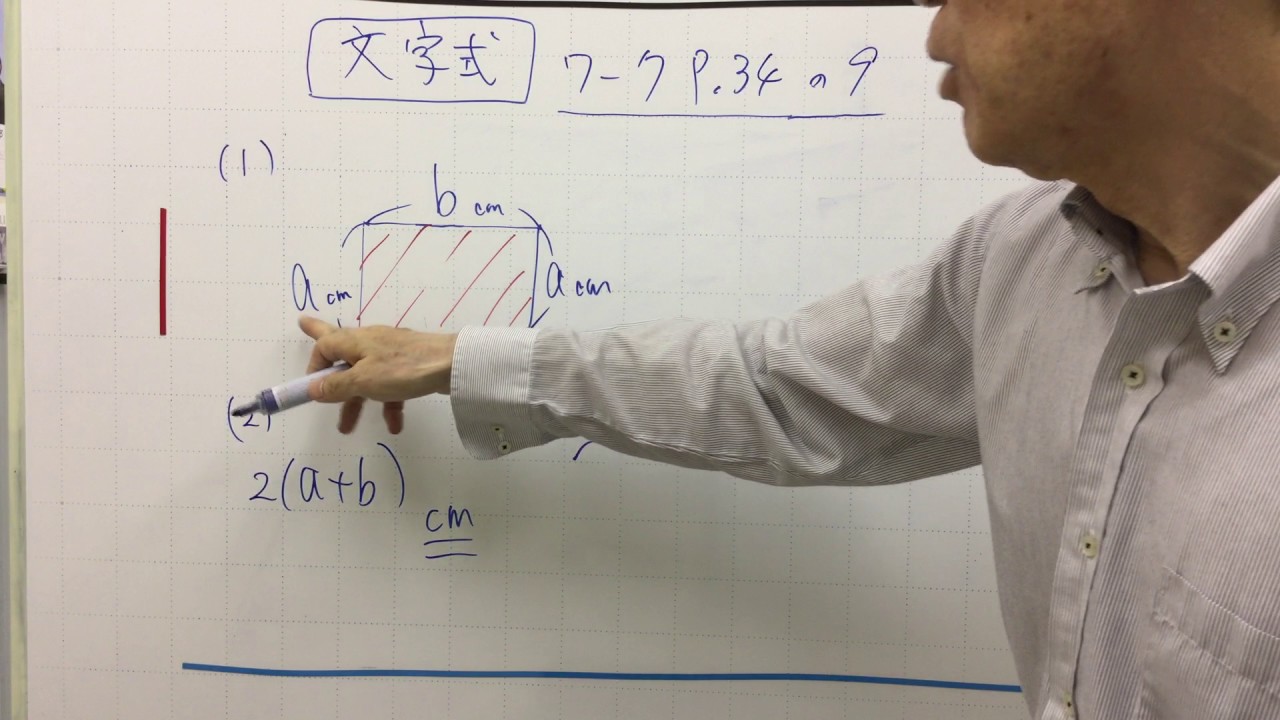 文字式 ワーク P.34 の 9
(1)
b cm
a cm
a cm
(2)
2(a+b) cm